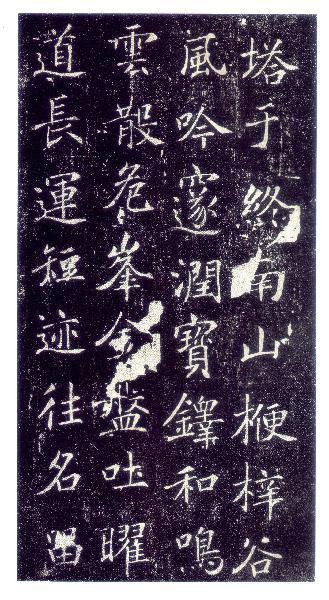 塔于終南山楩梓谷
風吟邃澗寶鐸和鳴
雲散危峯金盤吐曜
道長運短迹往名留